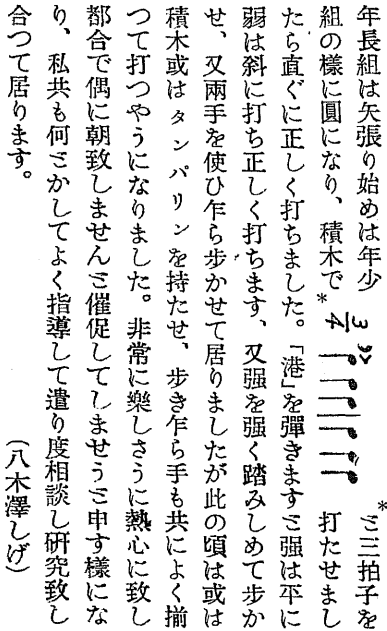 年長組は矢張り始めは年少
組の樣に圓になり、積木で
* 3/4
*と三拍子を
打たせまし
たら直ぐに正しく打ちました。「港」を彈きますと强は平に
弱は斜に打ち正しく打ちます、又强を强く踏みしめて步か
せ、又兩手を使ひ乍ら步かせて居りましたが此の頃は或は
積木或はタンバリンを持たせ、步き乍ら手も共によく揃
つて打つやうになりました。非常に樂しさうに熱心に致し
都合で偶に朝致しませんと催促してしませうと申す樣にな
り、私共も何とかしてよく指導して遣り度相談し硏究致し
合つて居ります。
(八木澤しげ)